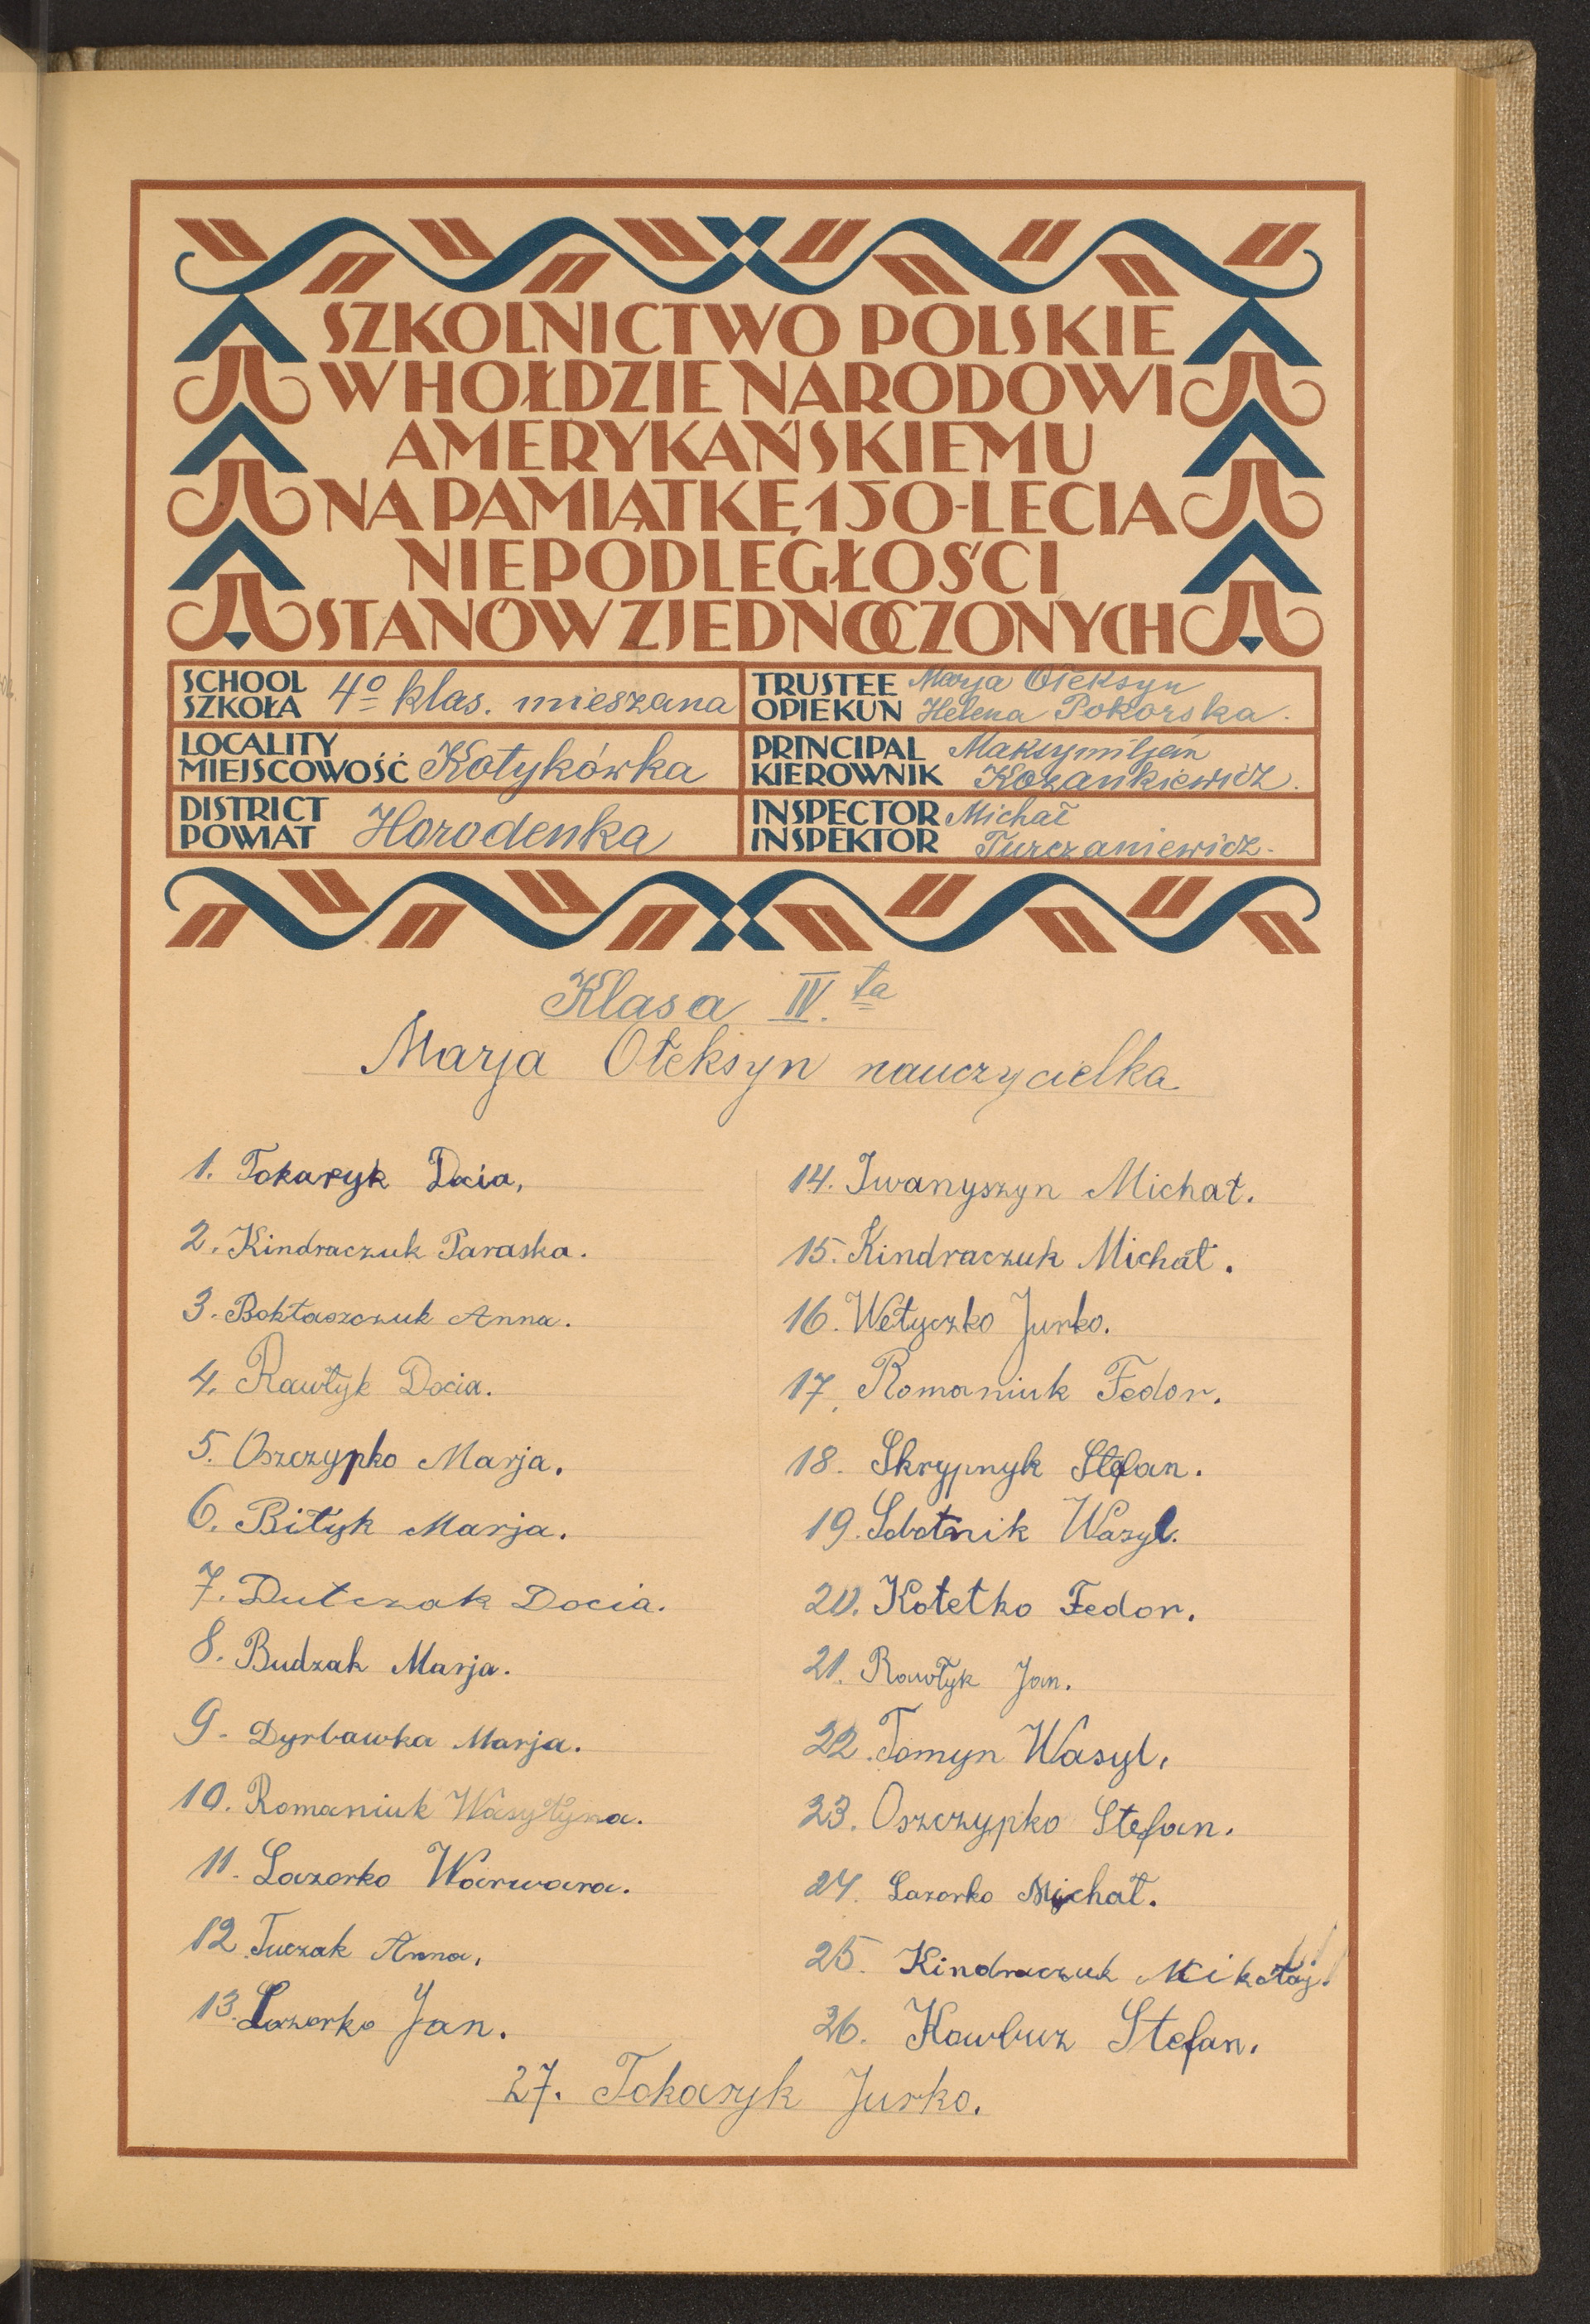 SZKOLNICTWO POLSKIE
W HOŁDZIE NARODOWI
AMERYKAŃSKIEMU
NA PAMIĄTKĘ 150-LECIA
NIEPODLEGŁOŚCI
STANÓW ZJEDNOCZONYCH
SCHOOL
SZKOŁA 4º klas. mieszana
TRUSTEE Marja Ołeksyn
OPIEKUN Helena Pokorska.
LOCALITY
MIEJSCOWOŚĆ Kotykówka
PRINCIPAL Maksymiljan
KIEROWNIK Kozankiewicz.
DISTRICT
POWIAT Horodenka
INSPECTOR Michał
INSPEKTOR Turczaniewicz.
Klasa IV.ta
Marja Ołeksyn nauczycielka
1. Tokaryk Docia,
2. Kindraczuk Paraska.
3. Bokłaszczuk Anna.
4. Rawłyk Docia.
5. Oszczypko Marja.
6. Biłyk Marja.
7. Dutczak Docia.
8. Budzak Marja.
9. Dyrbawka Marja.
10. Romaniuk Wasyłyna.
11. Lazorko Warwara.
12. Tuczak Anna,
13. Lazorko Jan.
14. Iwanyszyn Michał.
15. Kindraczuk Michał.
16. Wełyczko Jurko.
17. Romaniuk Fedor.
18. Skrypnyk Stefan.
19. Sobotnik Wasyl.
20. Kotełko Fedor.
21. Rawłyk Jan.
22. Tomyn Wasyl,
23. Oszczypko Stefan.
24. Lazorko Michał.
25. Kindraczuk Mikołaj.
26. Kowbuz Stefan.
27. Tokaryk Jurko.